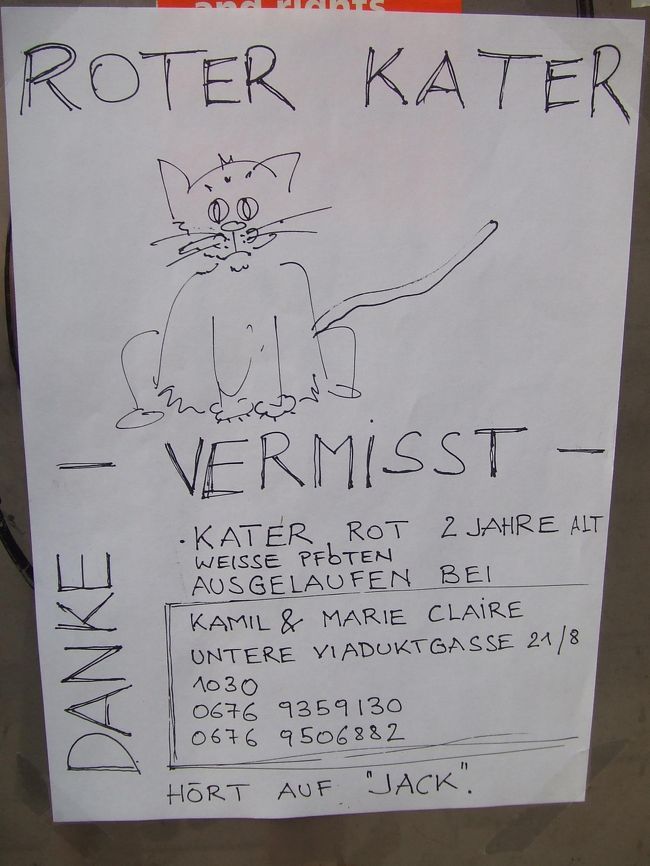 and rights
ROTER KATER
- VERMISST -
· KATER, ROT 2 JAHRE ALT
WEISSE PFÖTEN
AUSGELAUFEN BEI
KAMIL & MARIE CLAIRE
UNTERE VIADUKTGASSE 21/8
1030
0676 9359130
0676 9506882
HÖRT AUF "JACK".
DANKE